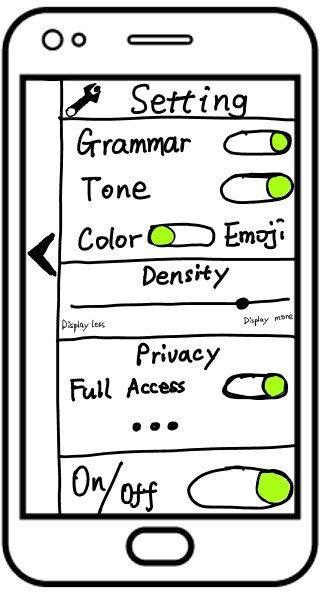 Setting
Grammar
Tone
Color Emoji
Density
Display less Display more
Privacy
Full Access
...
On/Off